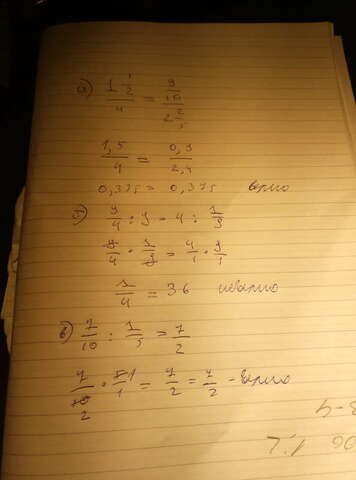 а) 1 1/2 / 4 = 9/10 / 2 2/5
1,5/4 = 0,9/2,4
0,375 = 0,375 верно
б) 9/4 : 9 = 4 : 1/9
9/4 · 1/9 = 4/1 · 9/1
1/4 = 36 неверно
в) 7/10 : 1/5 = 7/2
7/10 2 · 5 1/1 = 7/2 = 7/2 - верно